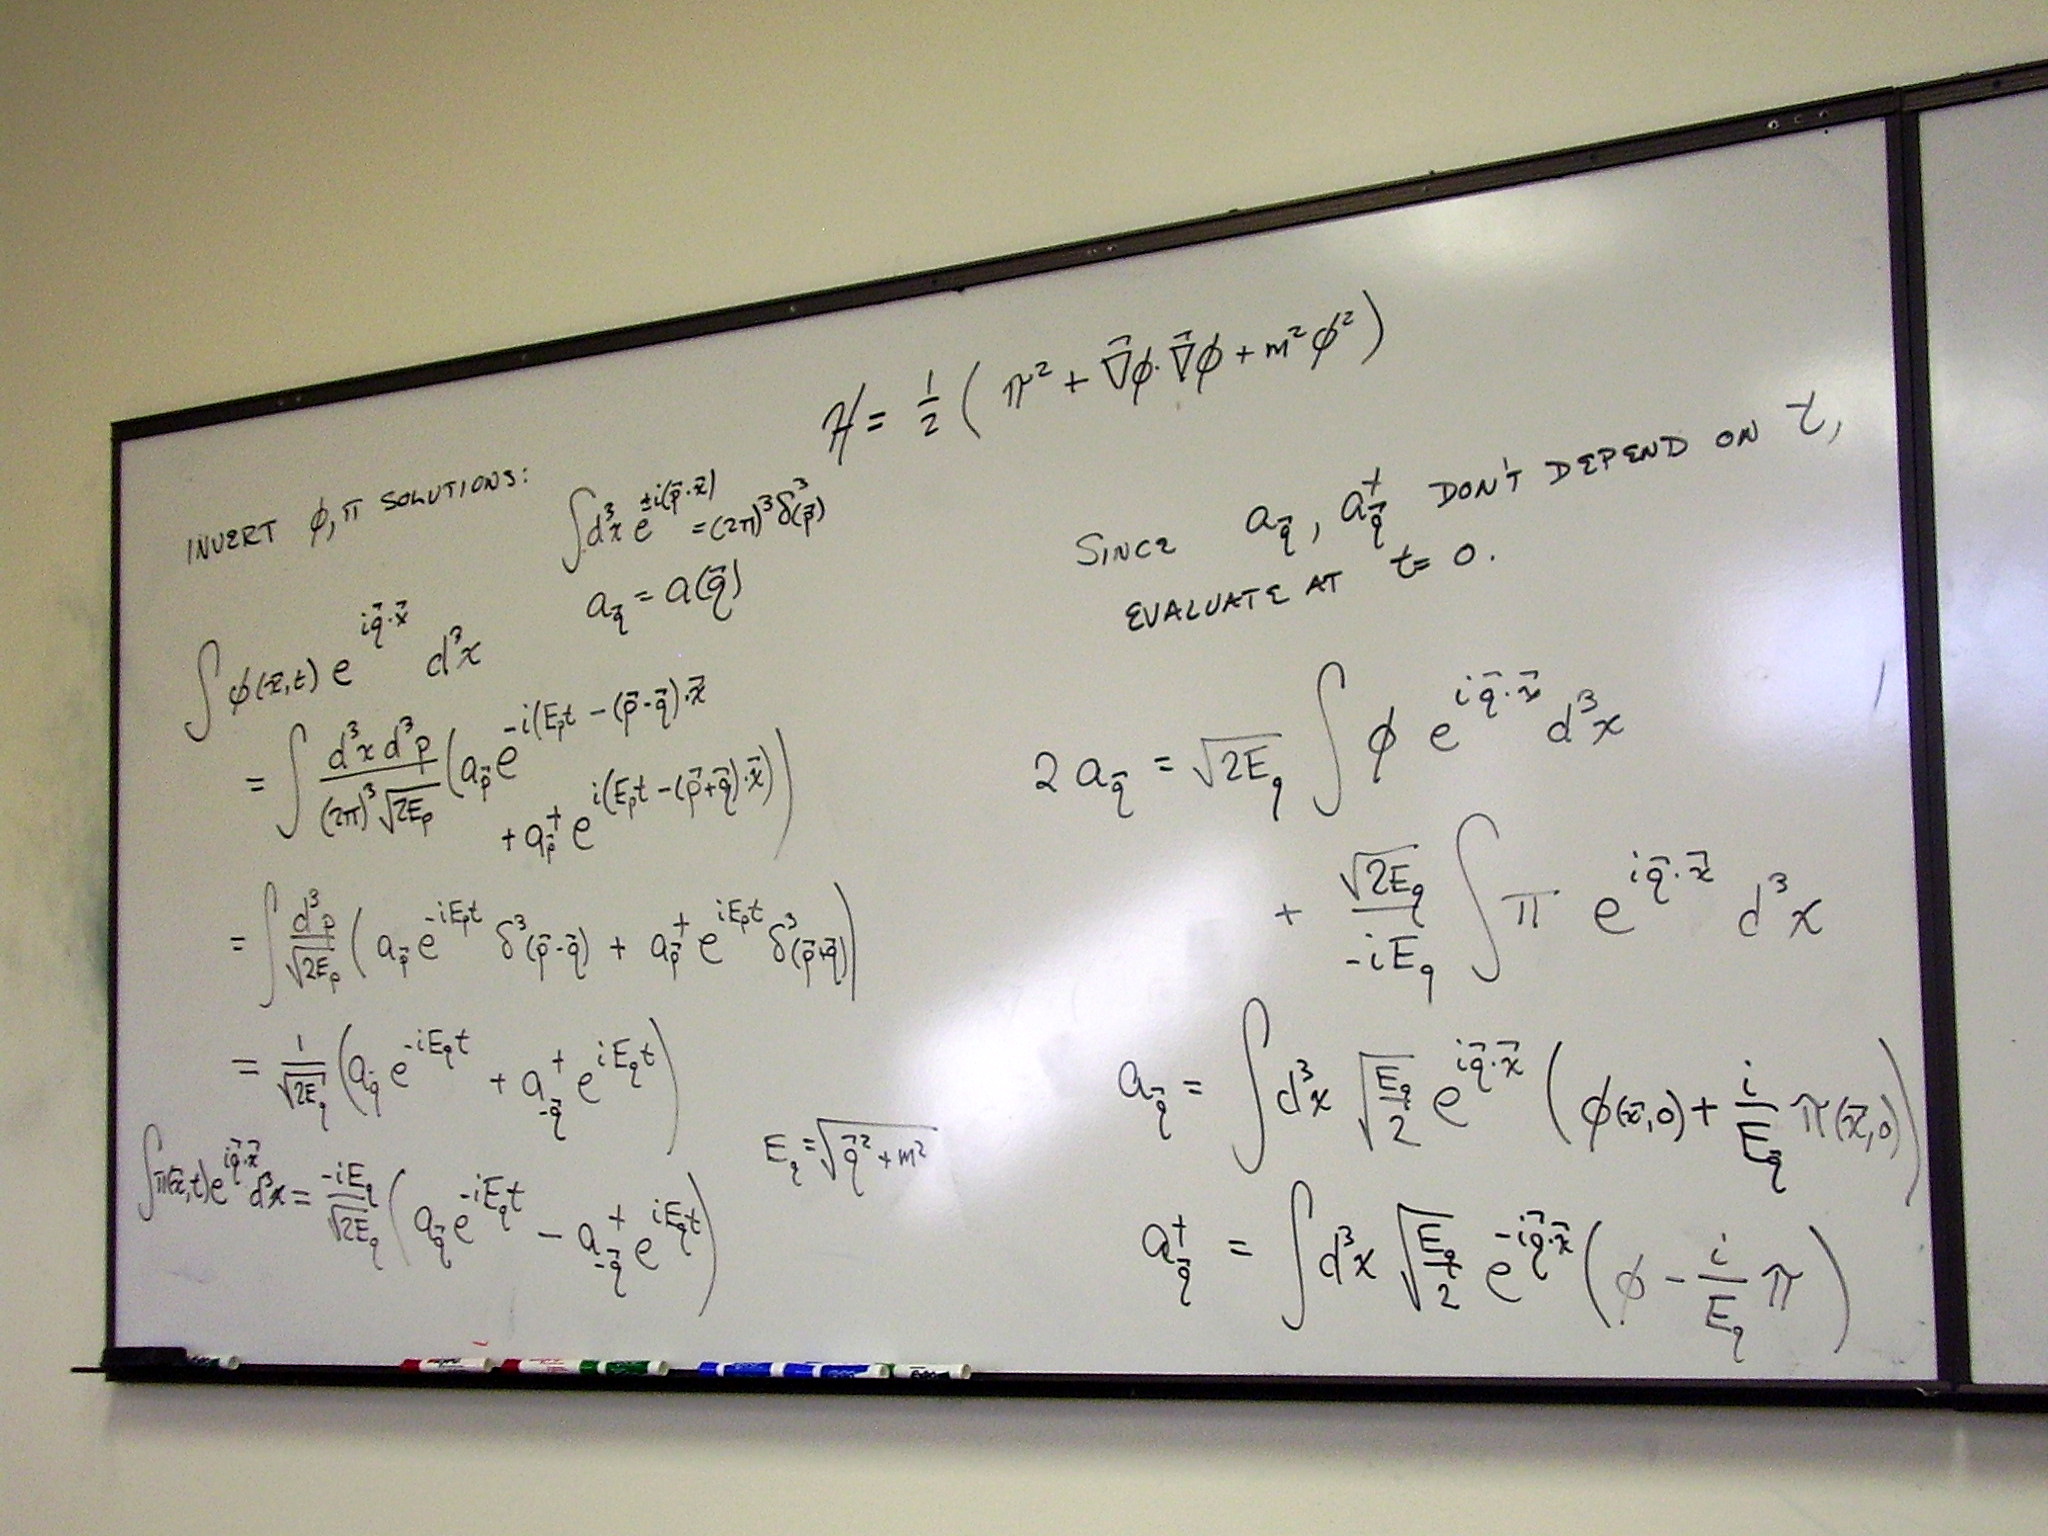 ℋ = 1/2 ( π² + ∇⃗ϕ·∇⃗ϕ + m²ϕ² )
INVERT ϕ, π SOLUTIONS:
∫d³x e^{±i(p⃗·x⃗)} = (2π)³ δ³(p⃗)
a_q⃗ = a(q⃗)
∫ϕ(x⃗,t) e^{iq⃗·x⃗} d³x
= ∫ d³x d³p / ((2π)³ √(2E_p)) ( a_p⃗ e^{-i(E_p t - (p⃗-q⃗)·x⃗}
+ a†_p⃗ e^{i(E_p t - (p⃗+q⃗)·x⃗)} )
= ∫ d³p/√(2E_p) ( a_p⃗ e^{-iE_p t} δ³(p⃗-q⃗) + a†_p⃗ e^{iE_p t} δ³(p⃗+q⃗) )
= 1/√(2E_q) ( a_q⃗ e^{-iE_q t} + a†_{-q⃗} e^{iE_q t} )
∫π(x⃗,t) e^{iq⃗·x⃗} d³x = -iE_q/√(2E_q) ( a_q⃗ e^{-iE_q t} - a†_{-q⃗} e^{iE_q t} )
E_q = √(q⃗² + m²)
SINCE a_q⃗, a†_q⃗ DON'T DEPEND ON t,
EVALUATE AT t = 0.
2 a_q⃗ = √(2E_q) ∫ ϕ e^{iq⃗·x⃗} d³x
+ √(2E_q)/(-iE_q) ∫ π e^{iq⃗·x⃗} d³x
a_q⃗ = ∫d³x √(E_q/2) e^{iq⃗·x⃗} ( ϕ(x⃗,0) + i/E_q⃗ π(x⃗,0) )
a†_q⃗ = ∫d³x √(E_q/2) e^{-iq⃗·x⃗} ( ϕ - i/E_q π )